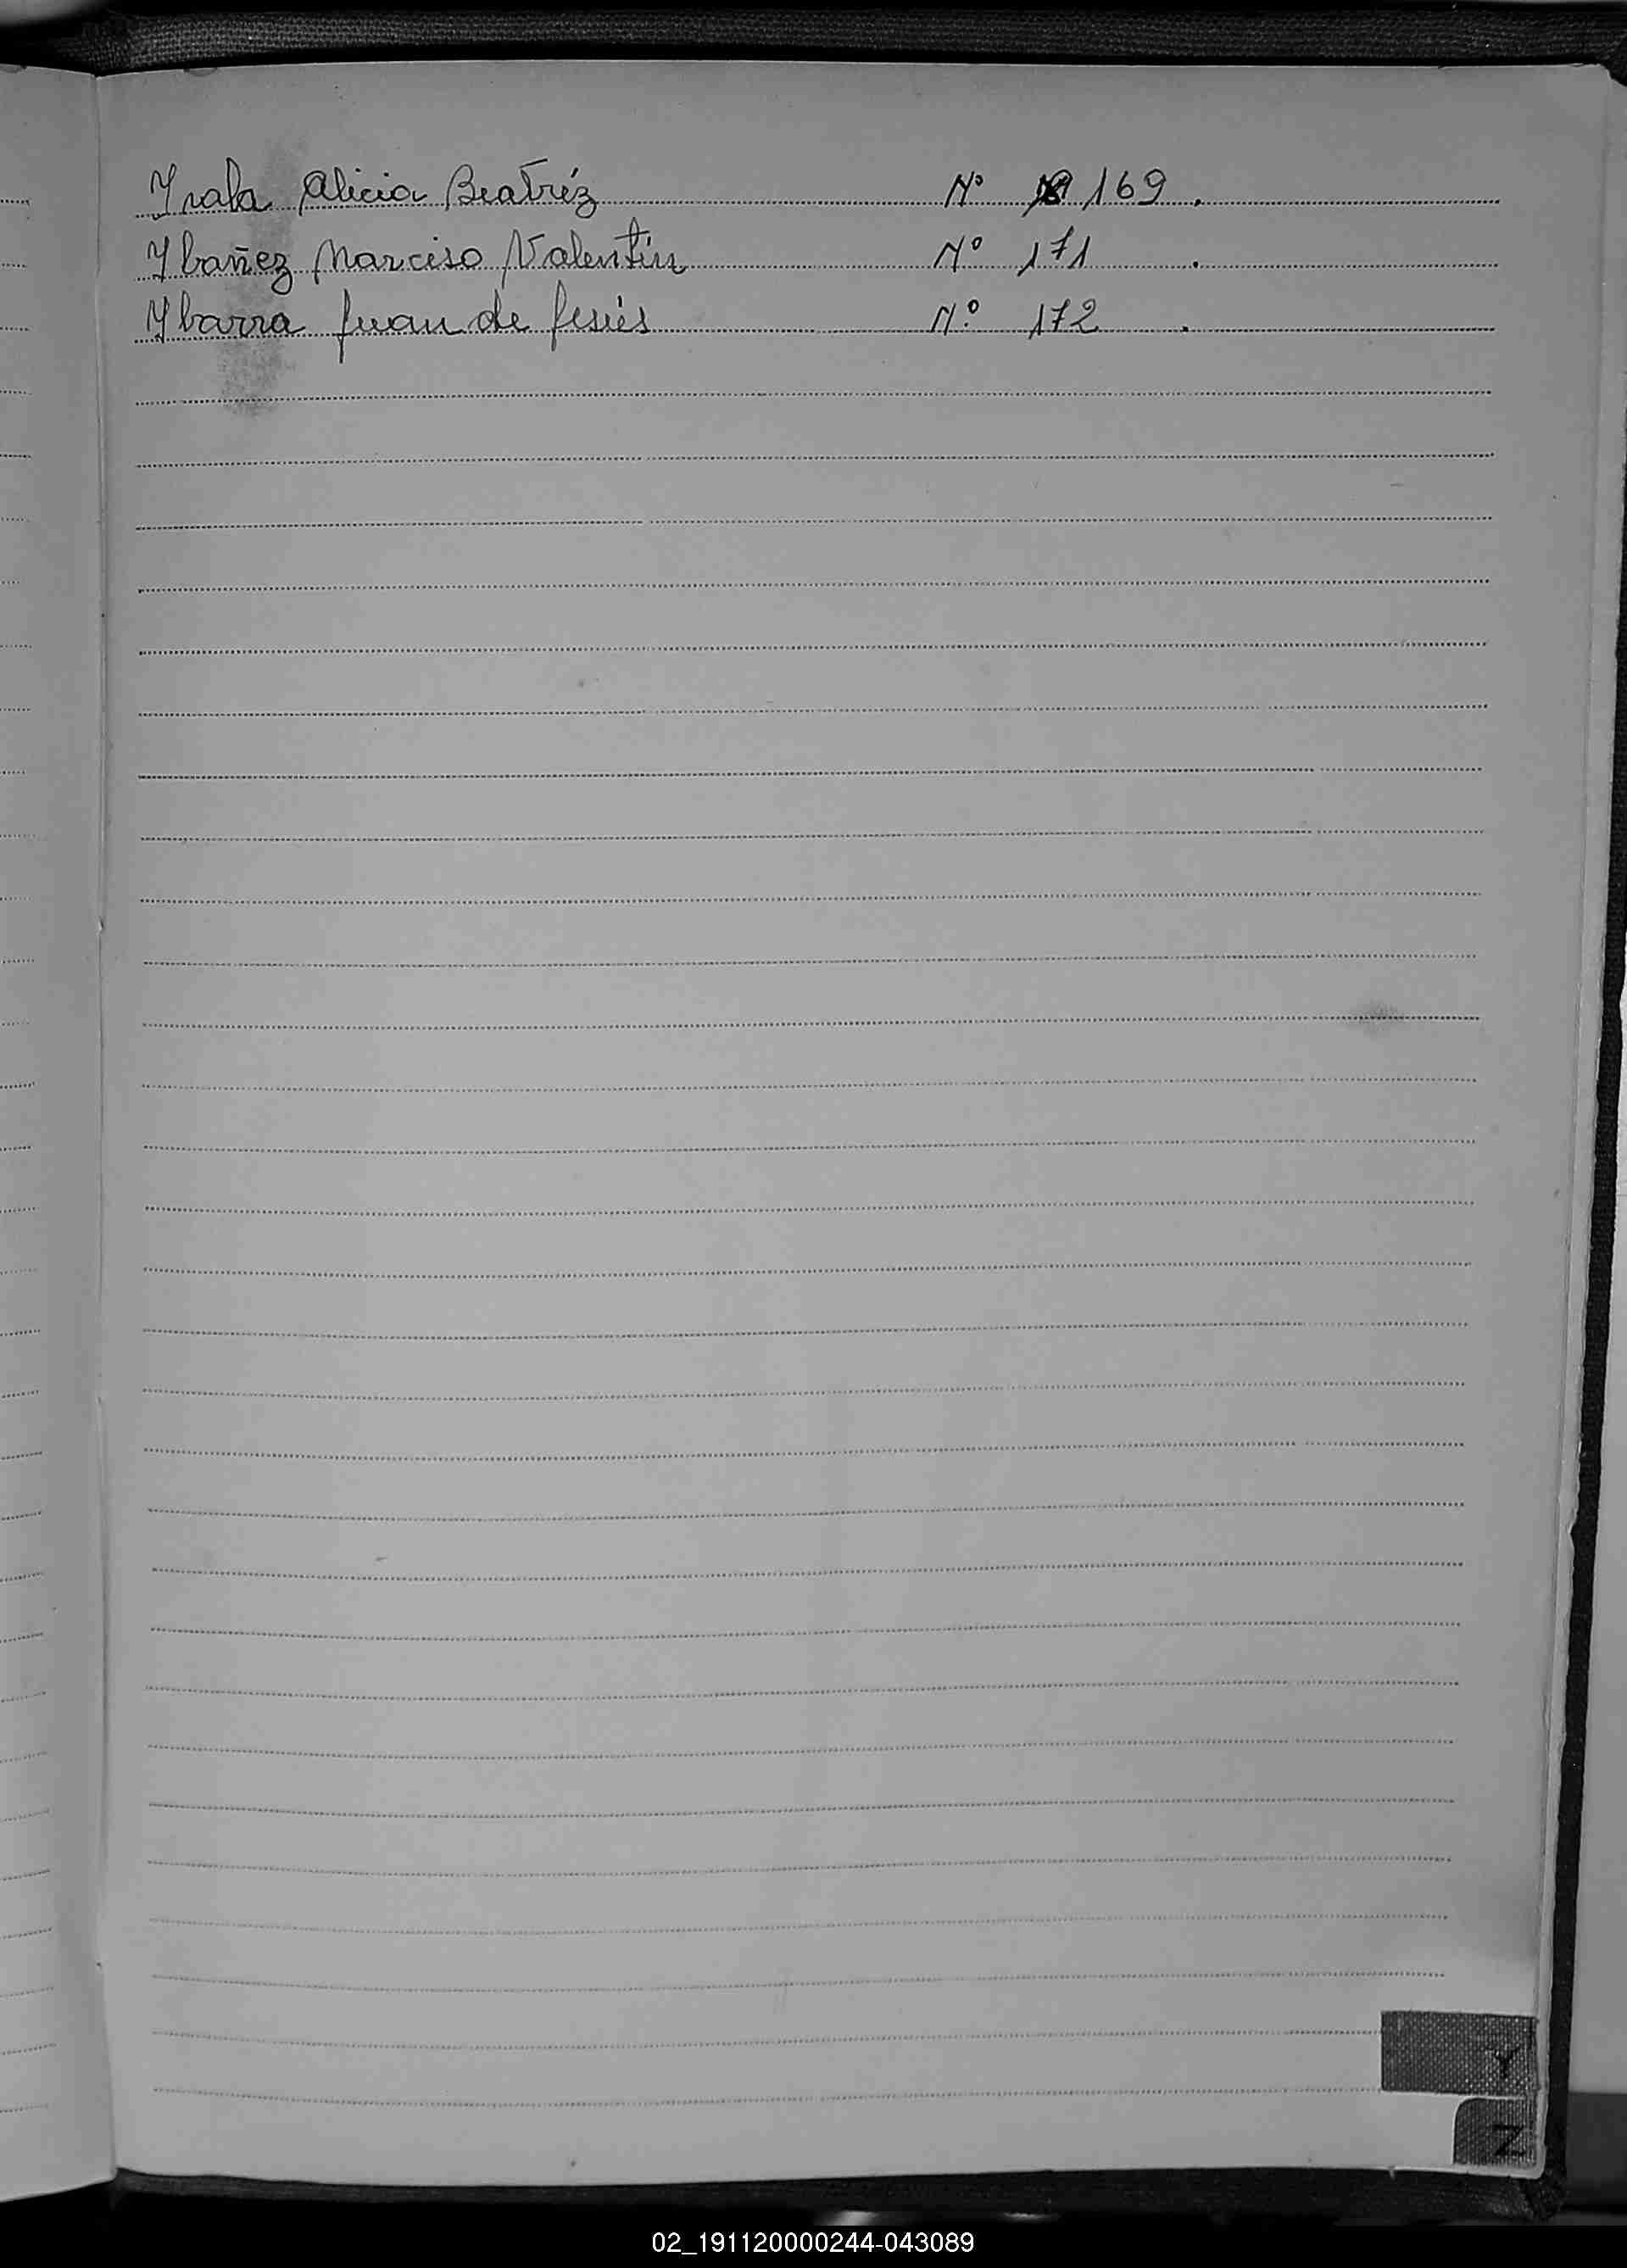 Yrala Alicia Beatréz Nº 169.
Ybañez Narciso Valentín Nº 171.
Ybarra Juan de Jesús Nº 172.
Y
Z
02_191120000244-043089